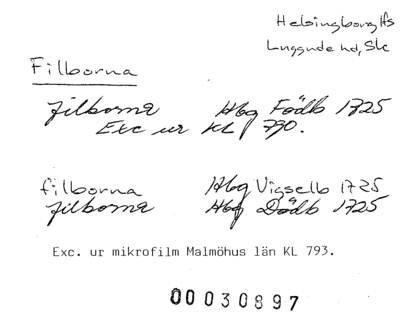 Helsingborg lfs
Luggude hd, Sk
Filborna
filborna Hbg Födb 1725
Exc ur KL 790.
filborna Hbg Vigselb 1725
filborna Hbg Dödb 1725
Exc. ur mikrofilm Malmöhus län KL 793.
00030897